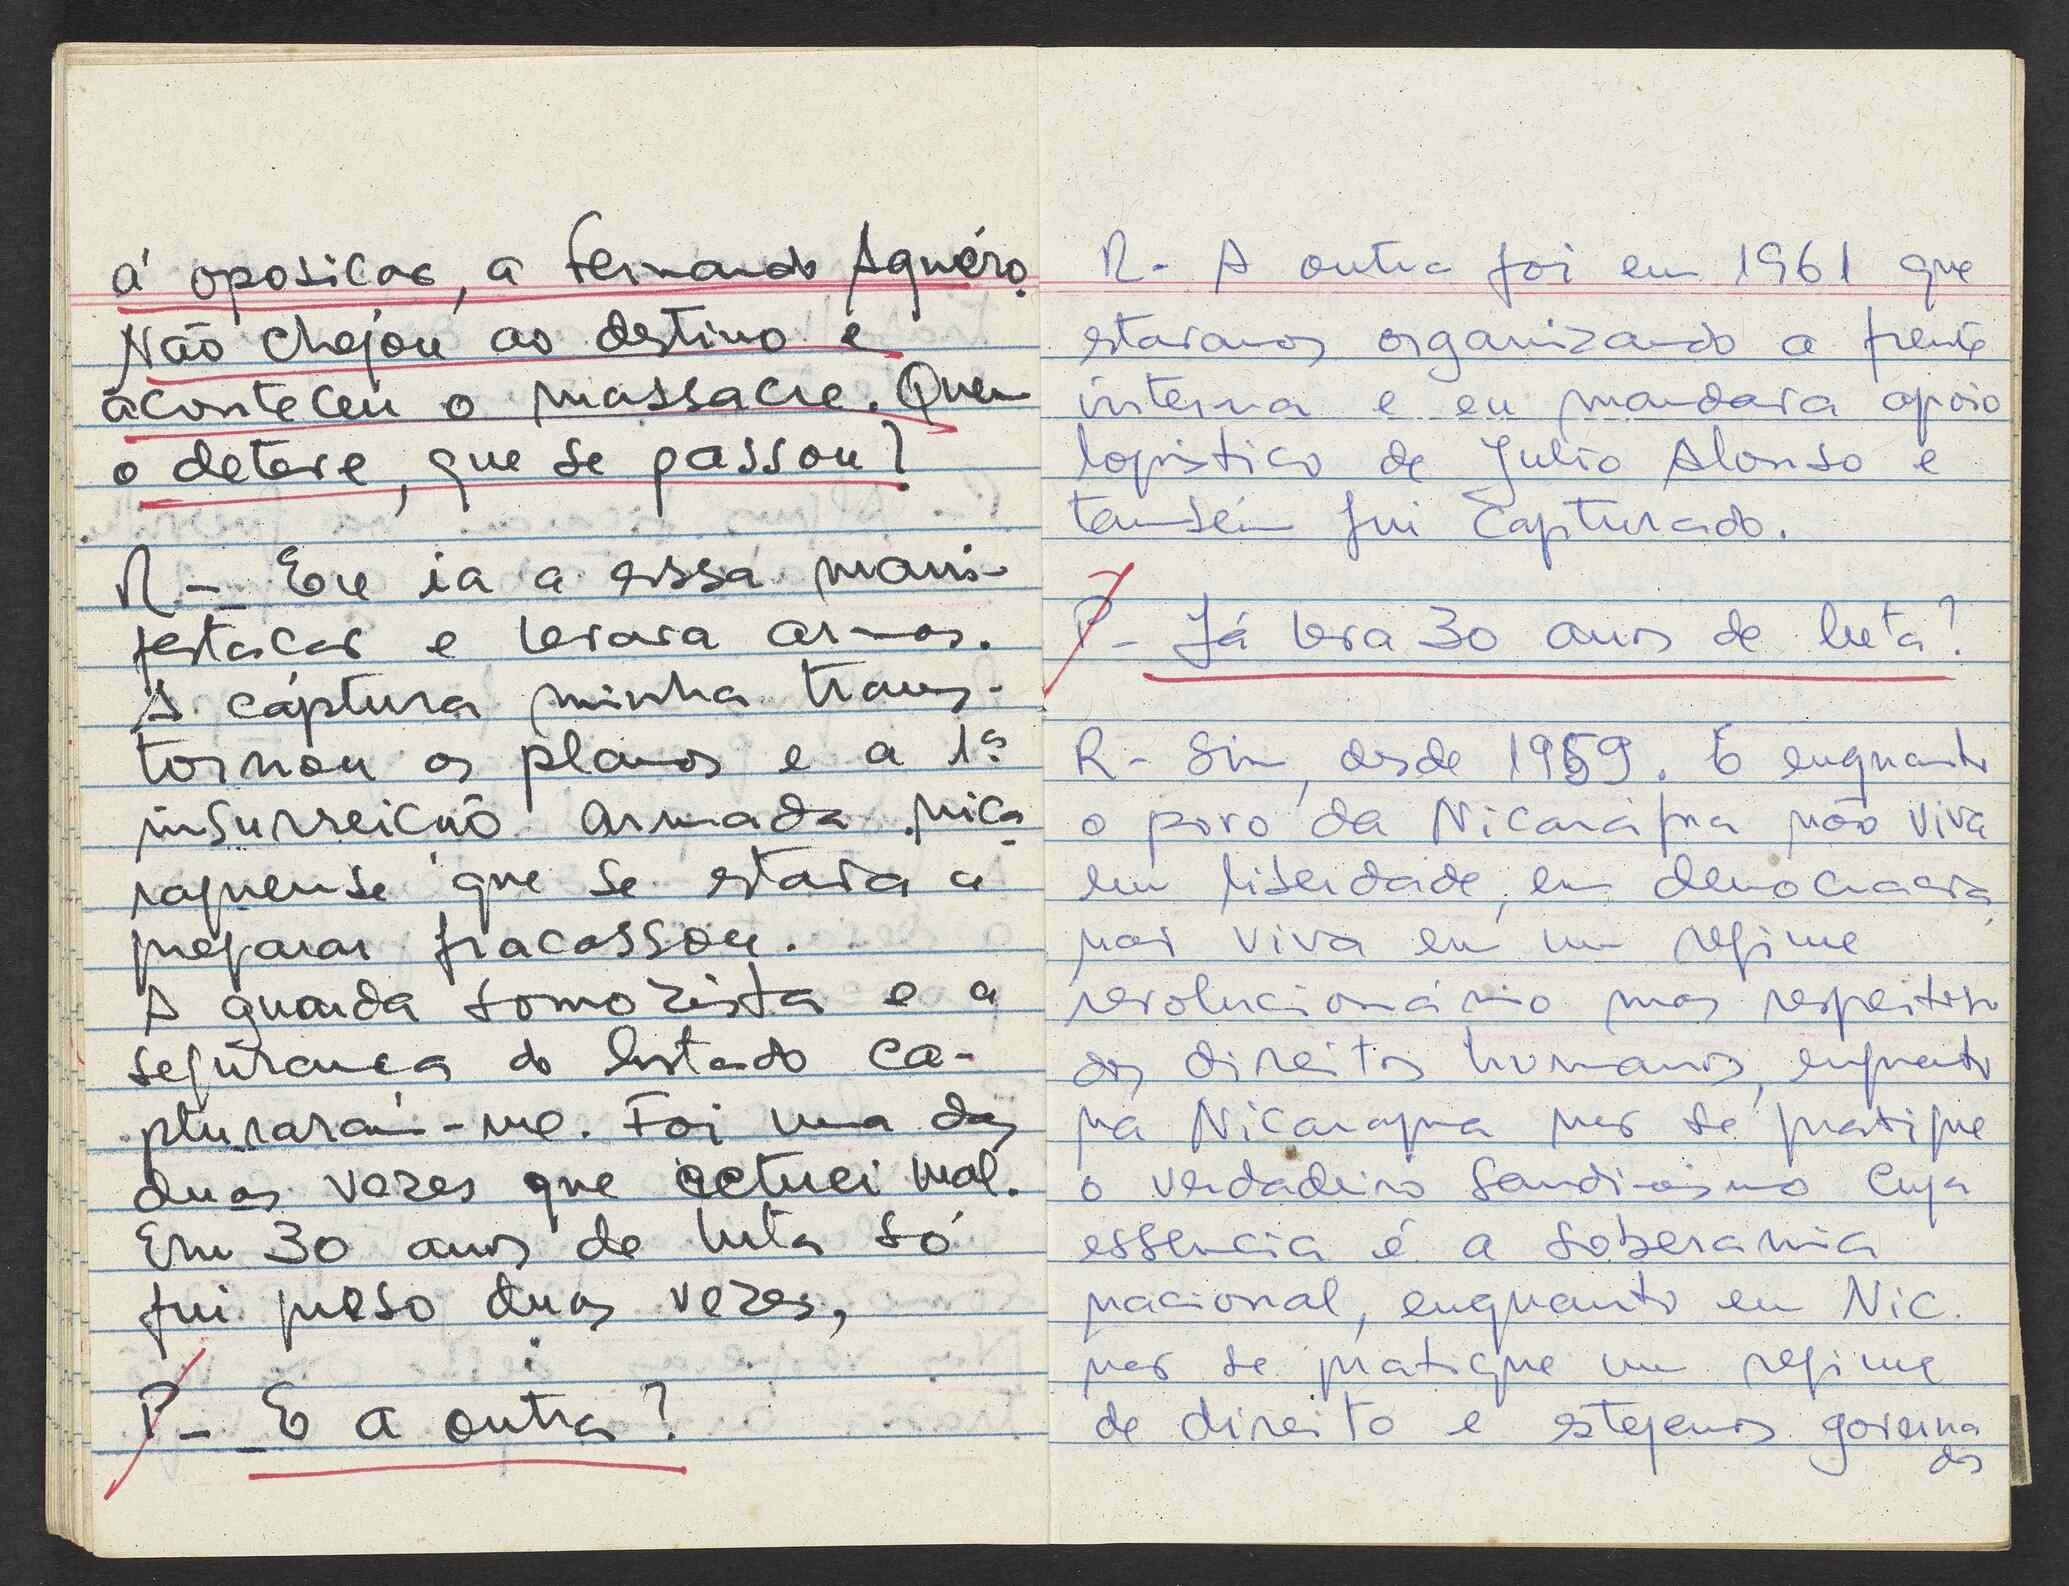 á oposicao, a Fernando Aguéro.
Não chegou ao destino e
aconteceu o massacre. Quem
o deteve, que se passou?
R - Eu ia a essa mani-
festacao e levava armas.
A captura minha trans-
tornou os planos e a 1ª
insurreicão armada nica
raguense que se estava a
preparar fracassou.
A guarda somozista e a
seguranca do Estado ca-
pturaram-me. Foi uma das
duas vezes que actuei mal.
Em 30 anos de luta só
fui preso duas vezes,
P - E a outra?
R - A outra foi em 1961 que
estavamos organizando a frente
interna e eu mandava apoio
logistico de Julio Alonso e
também fui capturado.
P - Já leva 30 anos de luta?
R - Sim, desde 1959. E enquanto
o povo da Nicarágua não viva
em liberdade, em democracia,
nao viva em um regime
revolucionário mas respeitoso
dos direitos humanos, enquanto
na Nicaragua nao se pratique
o verdadeiro Sandinismo cuja
essencia é a soberania
nacional, enquanto em Nic.
nao se pratique um regime
de direito e estejamos governa
dos